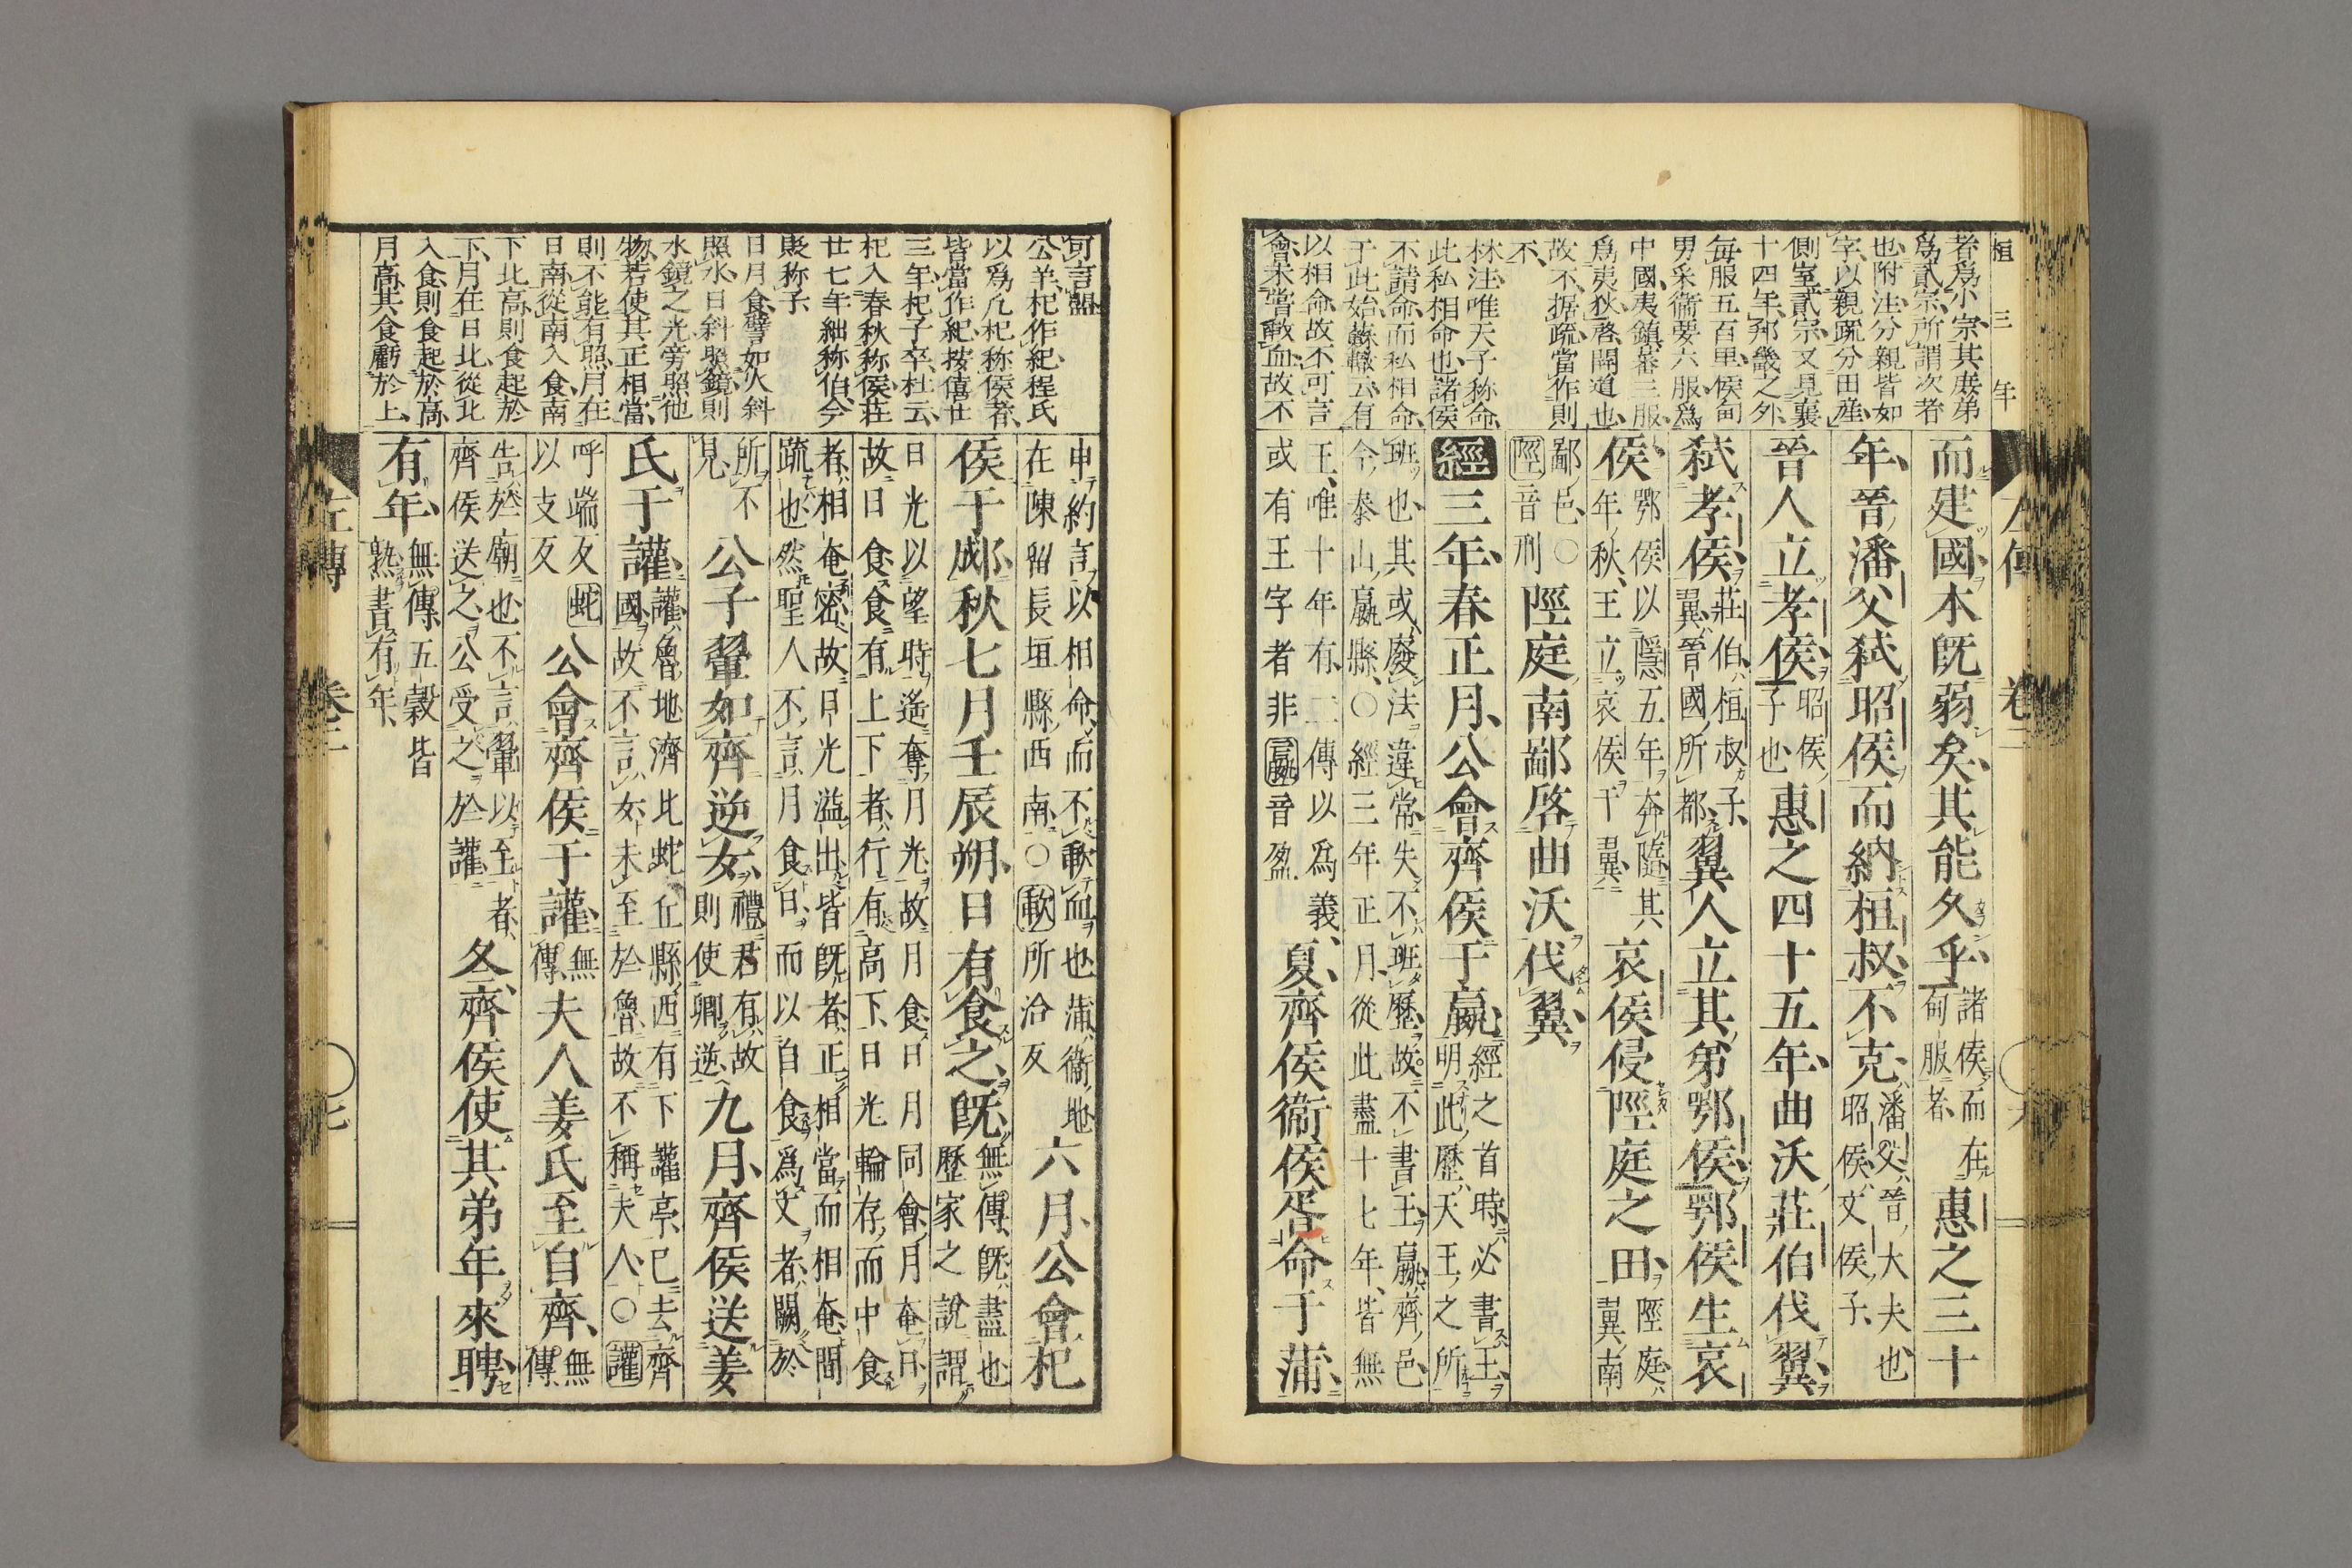 桓三年
者爲小宗其庻弟
爲貳宗所謂次者
也附注分親皆如
字以親疏分田産
側室貳宗又見襄
十四年邦畿之外
毎服五百里侯甸
男采衞要六服爲
中國夷鎮蕃三服
爲夷狄啓開道也
故不据疏當作則
不
林注唯天子称命
此私相命也諸侯
不請命而私相命
于此始蘇轍云有
以相命故不可言
會未嘗歃血故不
而建國本既弱矣其能久乎諸侯而在甸服者惠之三十
年晉潘父弑昭侯而納桓叔不克潘父晉大夫也昭侯文侯子
晉人立孝侯昭侯子也惠之四十五年曲沃莊伯伐翼
弑孝侯莊伯桓叔子翼晉國所都翼人立其弟鄂侯鄂侯生哀
侯鄂侯以隱五年奔隨其年秋王立哀侯于翼哀侯侵陘庭之田陘庭翼南
鄙邑○陘音刑陘庭南鄙啓曲沃伐翼
經三年春正月公會齊侯于嬴經之首時必書王明此歷天王之所
班也其或廢法違常失不班歷故不書王嬴齊邑今泰山嬴縣○經三年正月從此盡十七年皆無
王唯十年有二傳以爲義或有王字者非嬴音盈夏齊侯衞侯胥命于蒲
可言盟
公羊杞作紀程氏
以爲凢杞称侯者
皆當作紀按僖廿
三年杞子卒杜云
杞入春秋称侯荘
廿七年絀称伯今
貶称子
日月食譬如火斜
照水日斜照鏡則
水鏡之光旁照他
物若使其正相當
則不能有照月在
日南從南入食南
下北高則食起於
下月在日北從北
入食則食起於高
月高其食虧於上
申約言以相命而不歃血也蒲衞地在陳留長垣縣西南○歃所洽反六月公會杞
侯于郕秋七月壬辰朔日有食之既無傳既盡也歷家之說謂
日光以望時遙奪月光故月食日月同會月奄日故日食食有上下者行有高下日光輪存而中食
者相奄密故日光溢出皆既者正相當而相奄間疏也然聖人不言月食日而以自食爲文者闕於
所不見公子翬如齊逆女禮君有故則使卿逆九月齊侯送姜
氏于讙讙魯地濟北蛇丘縣西有下讙亭已去齊國故不言女未至於魯故不稱夫人○讙
呼端反蛇以支反公會齊侯于讙無傳夫人姜氏至自齊無傳
告於廟也不言翬以至者齊侯送之公受之於讙冬齊侯使其弟年來聘
有年無傳五穀皆熟書有年
左傳 卷二 ○七